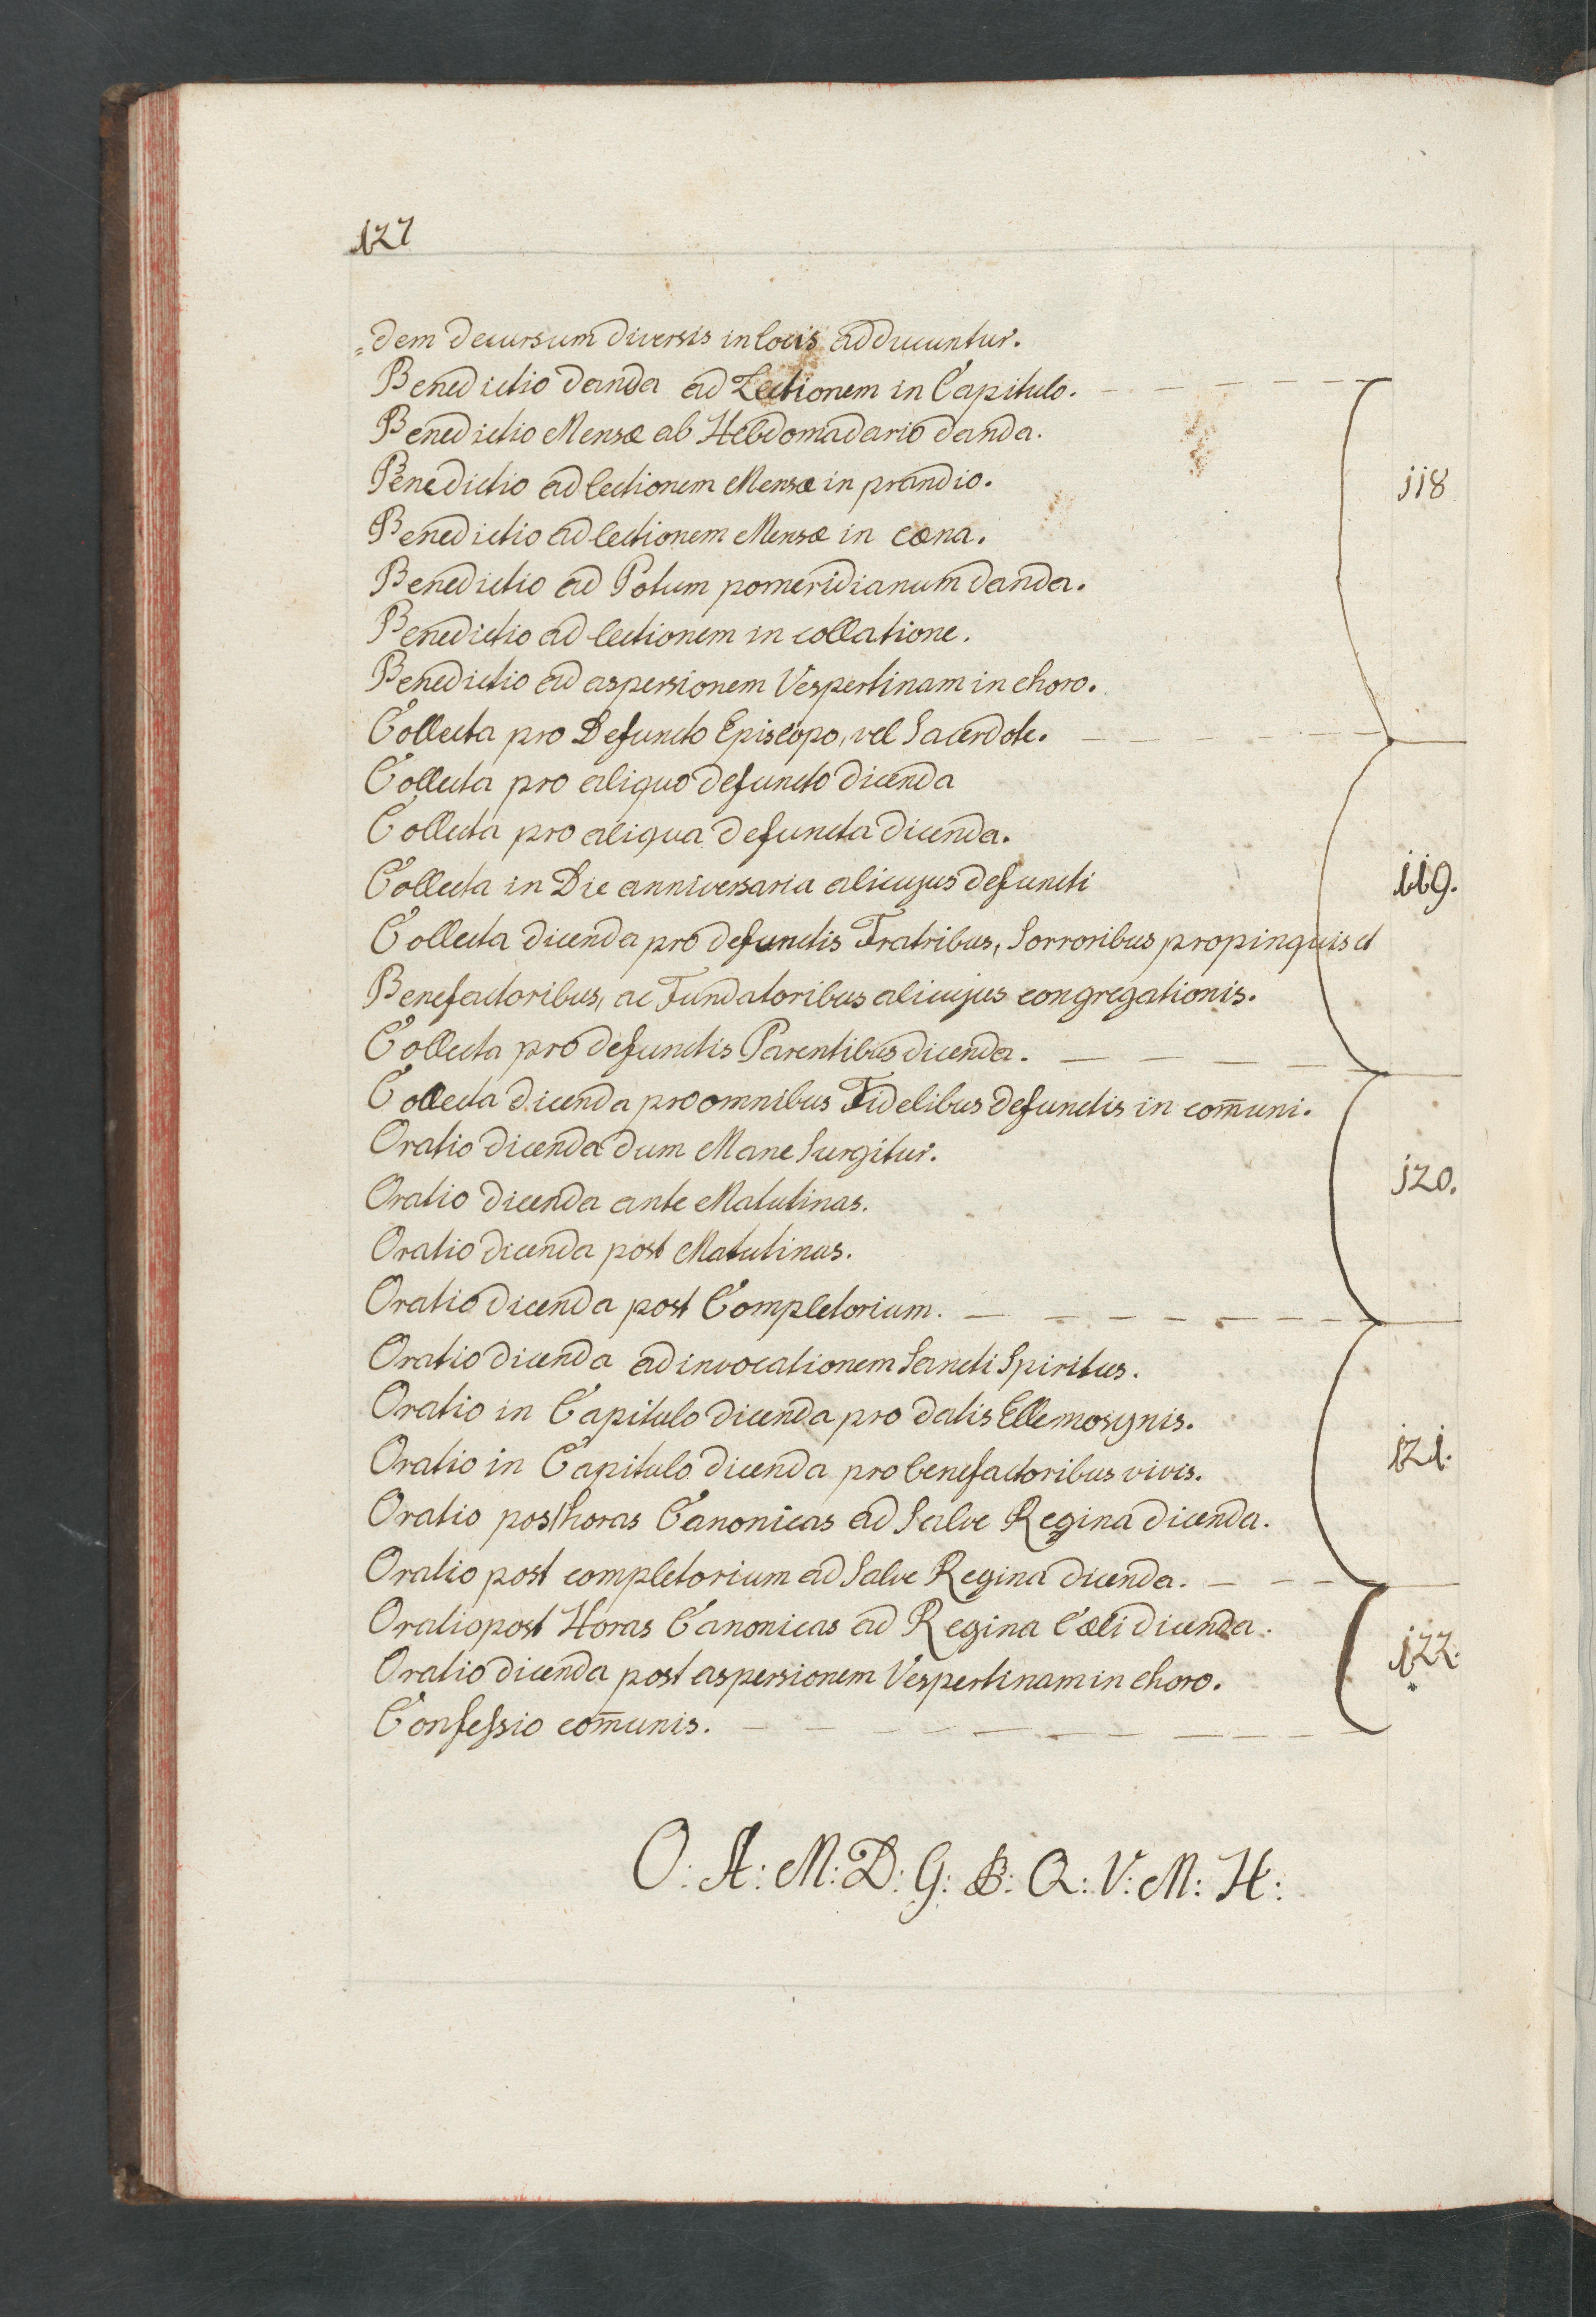 127
=dem decursum diversis in locis adducuntur.
Benedictio danda ad Lectionem in Capitulo.
Benedictio Mensæ ab Hebdomadario danda.
Benedictio ad lectionem Mensæ in prandio.
118
Benedictio ad lectionem Mensæ in cæna.
Benedictio ad Potum pomeridianum danda.
Benedictio ad lectionem in collatione.
Benedictio ad aspersionem Vespertinam in choro.
Collecta pro Defuncto Episcopo, vel Sacerdote.
Collecta pro aliquo defuncto dicenda
Collecta pro aliqua defuncta dicenda.
Collecta in Die anniversaria alicujus defuncti
119.
Collecta dicenda pro defunctis Fratribus, Sorroribus propinquis et
Benefactoribus, ac Fundatoribus alicujus congregationis.
Collecta pro defunctis Parentibus dicenda.
Collecta dicenda pro omnibus Fidelibus defunctis in com̄uni.
Oratio dicenda dum Mane Surgitur.
Oratio dicenda ante Matutinas.
120.
Oratio dicenda post Matutinas.
Oratio dicenda post Completorium.
Oratio dicenda ad invocationem Sancti Spiritus.
Oratio in Capitulo dicenda pro datis Ellemosynis.
Oratio in Capitulo dicenda pro benefactoribus vivis.
121.
Oratio post horas Canonicas ad Salve Regina dicenda.
Oratio post completorium ad Salve Regina dicenda.
Oratio post Horas Canonicas ad Regina Cæli dicenda.
122.
Oratio dicenda post aspersionem Vespertinam in choro.
Confessio com̄unis.
O: A: M: D: G: B: Q: V: M: H: